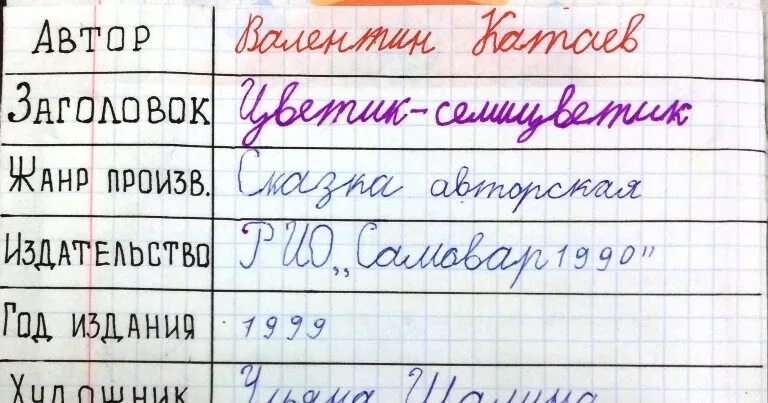 Автор Валентин Катаев
Заголовок Цветик-семицветик
Жанр произв. Сказка авторская
Издательство РИО „Самовар 1990"
Год издания 1999
Художник Ульяна Шалина